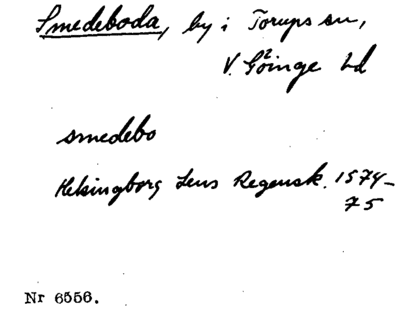 Smedeboda, by i Torups sn,
V. Göinge hd
smedebo
Helsingborg Lens Regensk. 1574-
75
Nr 6556.